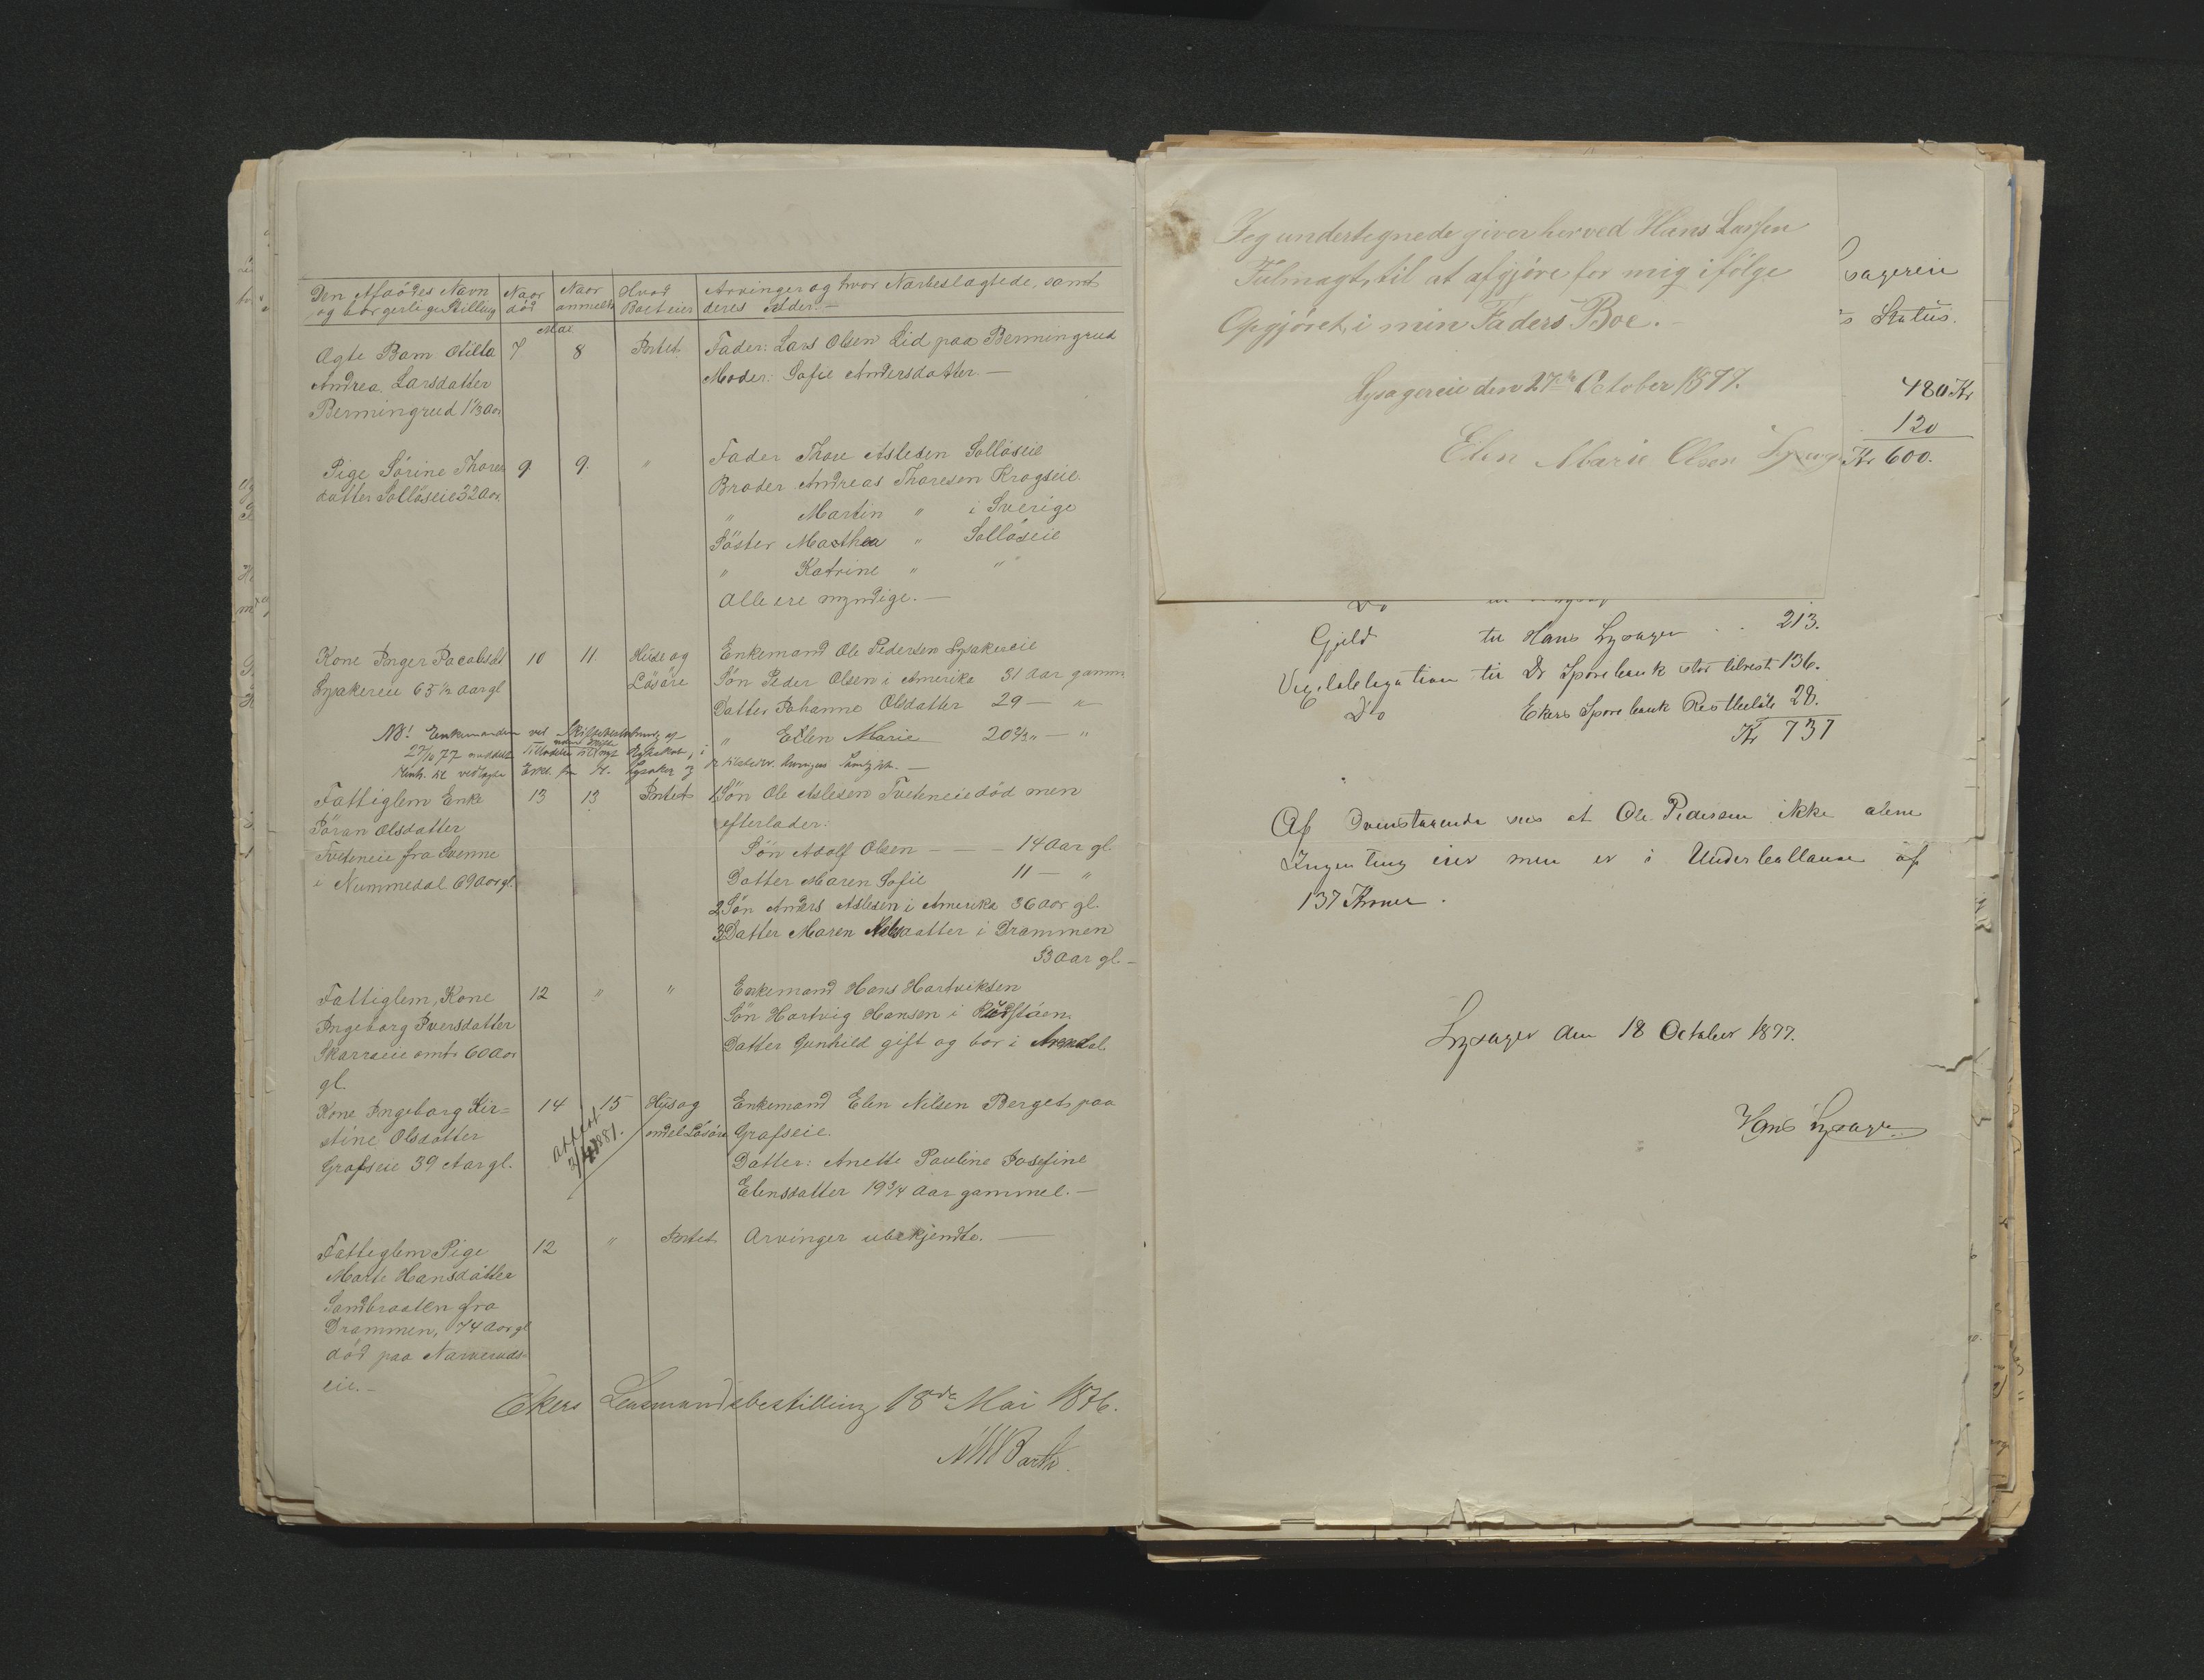 Den Afdödes Navn
og borgerlige Stilling
Naar
död
Naar
anmeldt
Hvad
Boet eier
Arvinger og hvor Nærbeslægtede, samt
deres Alder. —
Mai
Ægte Barn Otilla
Andrea Larsdatter
Bermingrud 1 1/3 Aar
7
8
Intet
Fader: Lars Olsen Lid paa Bermingrud
Moder: Sofie Andersdatter. —
Pige Sörine Thores
datter Sollöseie 32 Aar.
9
9.
"
Fader Thore Aslesen Sollöseie
Broder Andreas Thoresen Krogseie.
" Martin " i Sverige
Söster Marthea " Sollöseie
" Katrine " "
Alle ere myndige. —
Kone Inger Jacobsdt
Lysakereie 65 1/2 Aar gl
10
11
Huse og
Lösöre
Enkemand Ole Pedersen Lysakereie
Sön Peder Olsen i Amerika 31 Aar gamm
Datter Johanne Olsdatter 29 — "
" Ellen Marie 20 2/3 " — "
NB! Enkemanden ved
27/10 77 meddelt
Fattiglem Enke
Göran Olsdatter
Tveteneie fra Svenne
i Nummedal 69 Aar gl.
13
13
Intet
1 Sön Ole Aslesen Tveteneie död men
efterlader:
Sön Adolf Olsen — — — 14 Aar gl
Datter Maren Sofie 11 — "
2 Sön Anders Aslesen i Amerika 36 Aar gl.
3 Datter Maren Nilsdatter i Drammen
33 Aar gl. —
Fattiglem, Kone
Ingeborg Iversdatter
Skarraeie omtr 60 Aar
gl.
12
"
"
Enkemand Hans Hartviksen
Sön Hartvig Hansen i
Datter Gunhild gift og bor i Arendal.
Kone Ingeborg Kir=
stine Olsdatter
Grafseie 39 Aar gl.
14
15
Hus og
endel Lösöre
1881.
Enkemand Elen Nilsen Berget paa
Grafseie.
Datter: Anette Pauline Josefine
Elensdatter 19 3/4 Aar gammel. —
Fattiglem Pige
Marte Hansdatter
Sandbraaten fra
Drammen, 74 Aar gl
död paa Narveruds-
eie. —
12
"
Intet
Arvinger ubekjendte. —
Ekers Lensmandsbestilling 18de Mai 1876.
Barth.
Jeg undertegnede giver herved Hans Larsen
Fulmagt, til at afgjöre for mig ifölge
Opgjöret, i min Faders Boe. —
Lysagereie den 27de October 1877.
Elen Marie Olsen
sagereie
s Status.
480 Kr
120
Kr 600.
Gjeld til Hans Lysager . . 213.
til Dr Sparebank 136.
Do Ekers Sparebank 28.
Kr 737
Af Ovenstaaende sees at Ole Pedersen ikke alene
Ingenting eier men er i Underballance af
137 Kroner.
Lysager den 18 October 1877.
Hans Lysager